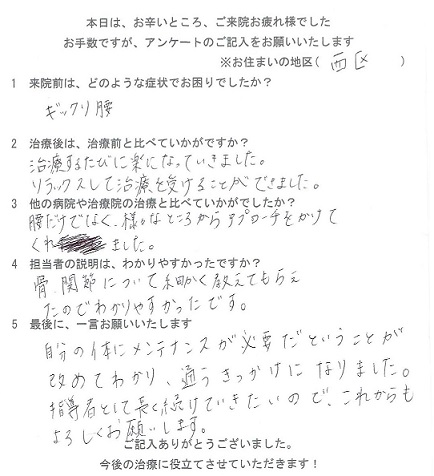 本日は、お辛いところ、ご来院お疲れ様でした
お手数ですが、アンケートのご記入をお願いいたします
※お住まいの地区( 西区 )
1 来院前は、どのような症状でお困りでしたか?
ギックリ腰
2 治療後は、治療前と比べていかがですか?
治療するたびに楽になっていきました。
リラックスして治療を受けることができました。
3 他の病院や治療院の治療と比べていかがでしたか?
腰だけでなく、様々なところからアプローチをかけて
くれました。
4 担当者の説明は、わかりやすかったですか?
骨、関節について細かく教えてもらえ
たのでわかりやすかったです。
5 最後に、一言お願いいたします
自分の体にメンテナンスが必要だということが
改めてわかり、通うきっかけになりました。
指導者として長く続けていきたいので、これからも
よろしくお願いします。
ご記入ありがとうございました。
今後の治療に役立てさせていただきます!